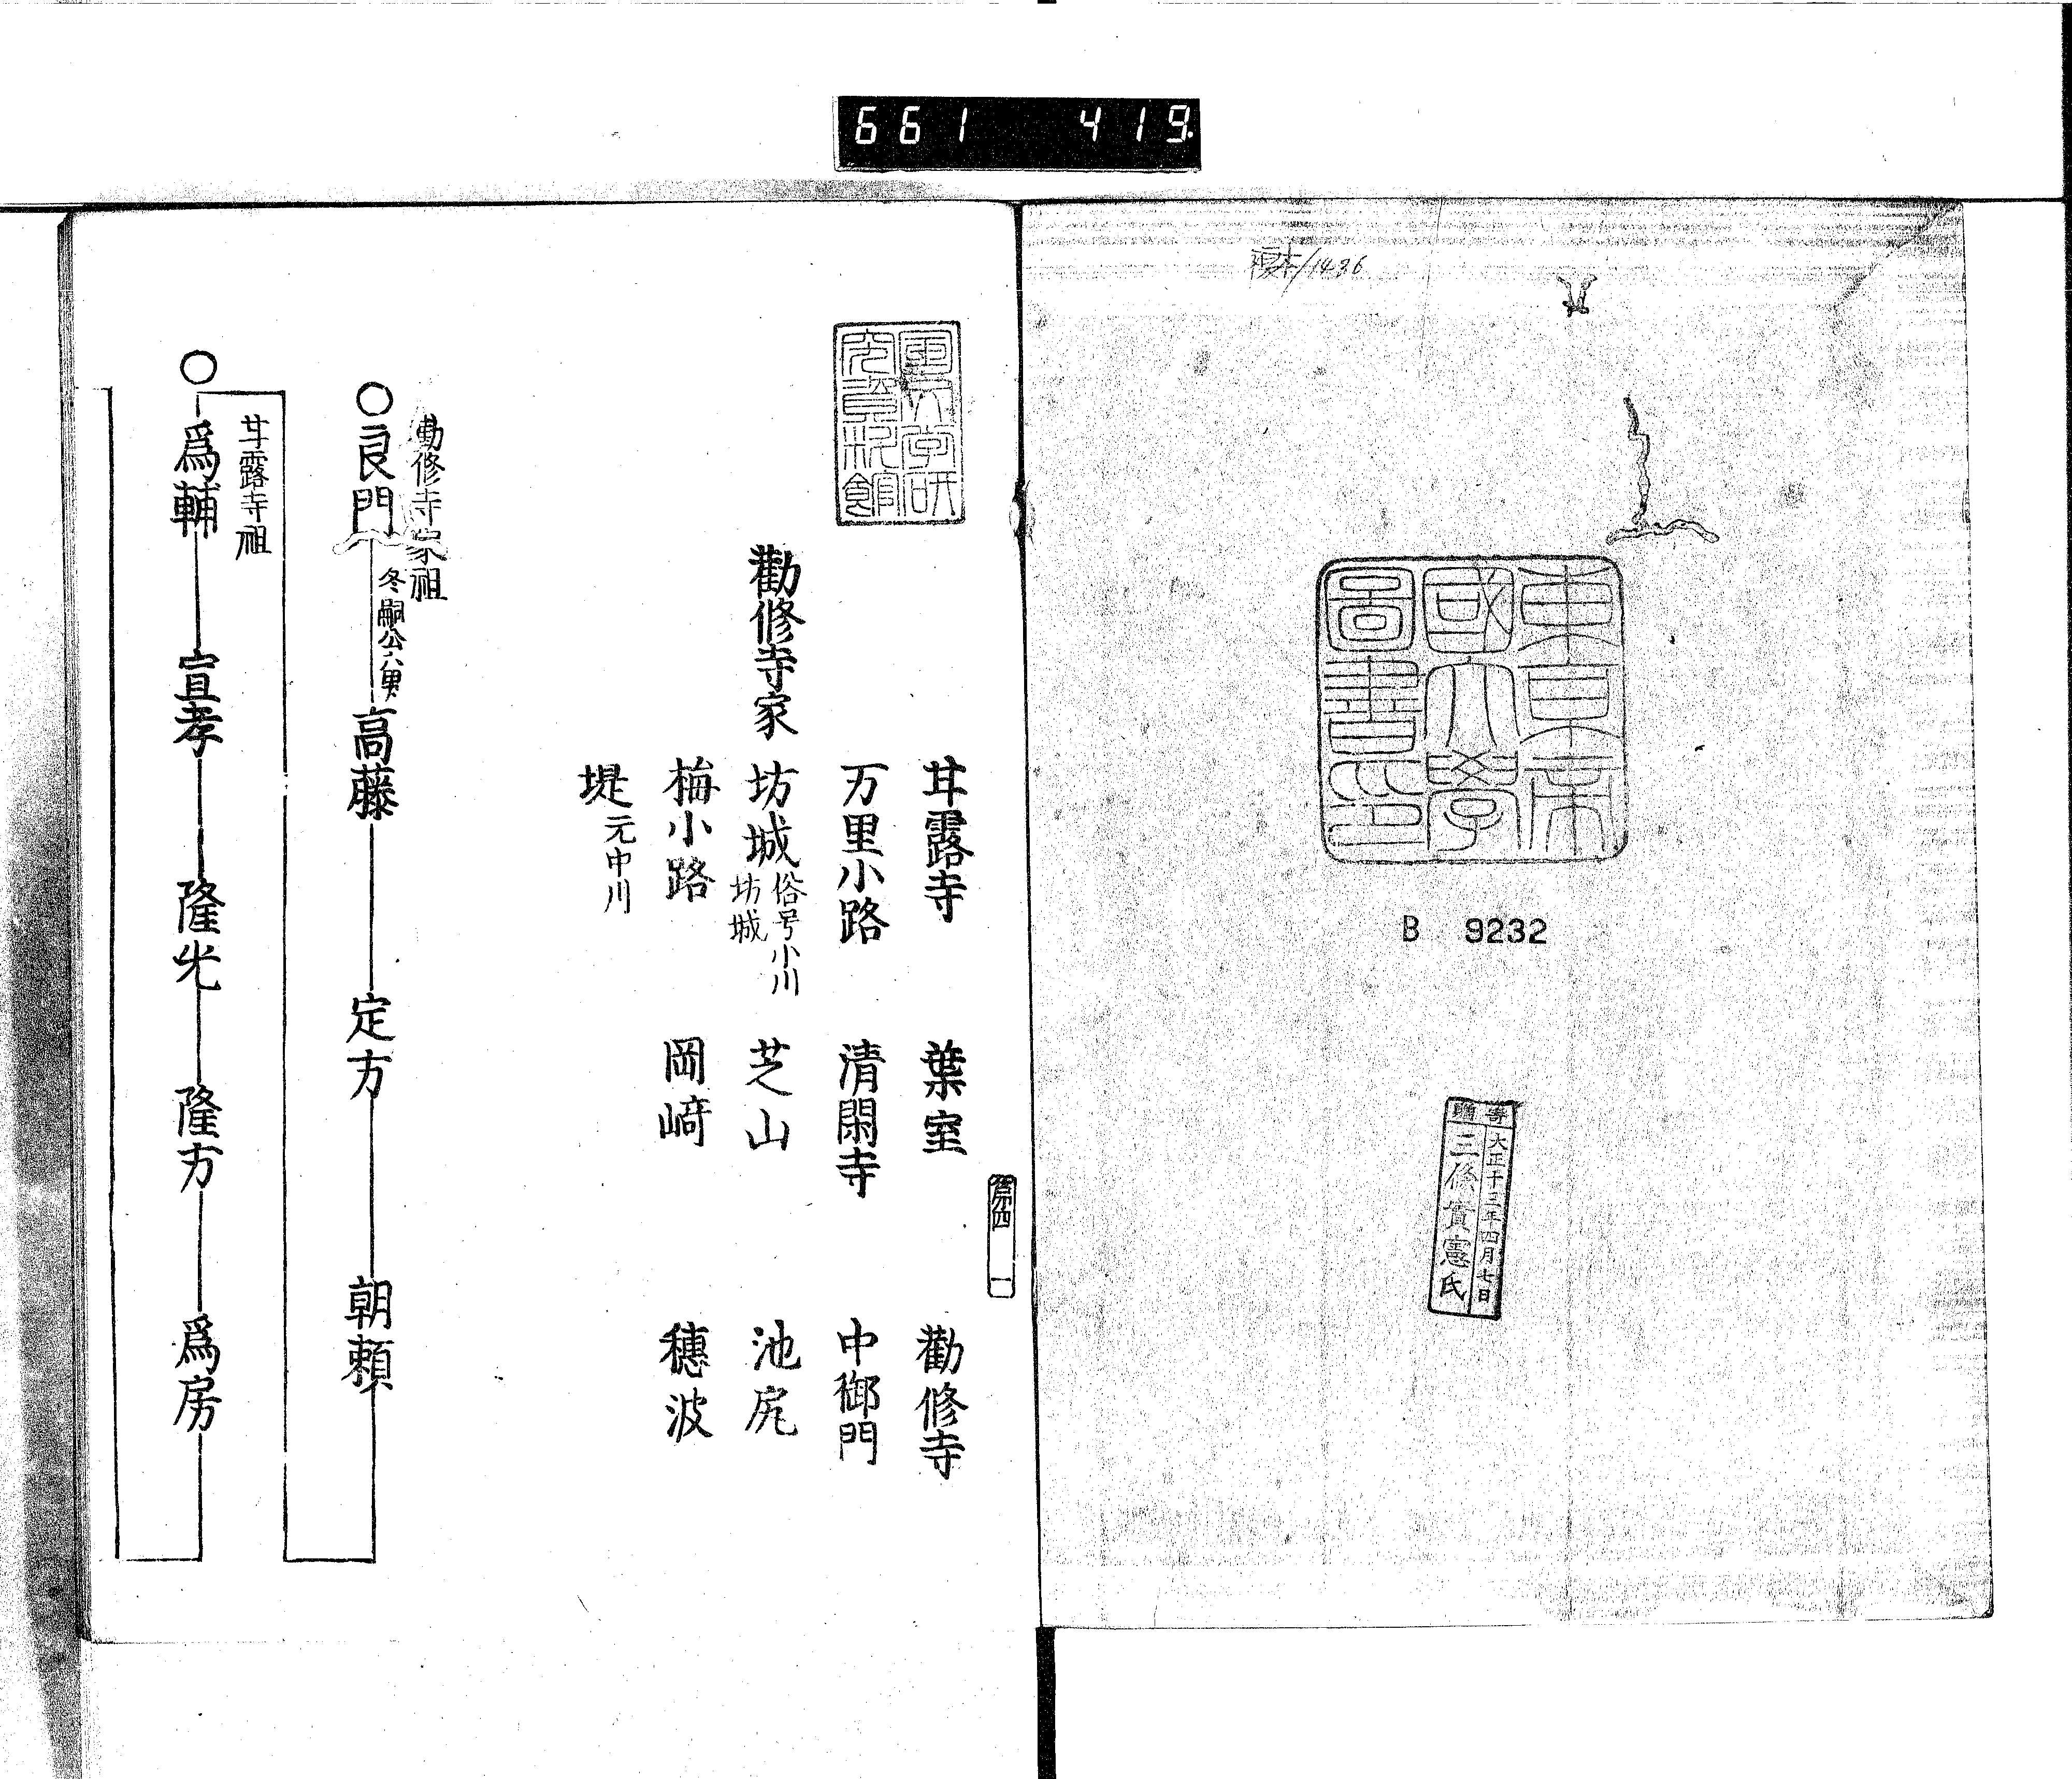 661 419
複本/1496
東京帝
國大學
圖書印
B 9232
寄贈
大正十三年四月七日
三條實憲氏
第四 一
史学研
究資料館
甘露寺 葉室 勸修寺
万里小路 清閑寺 中御門
勸修寺家 坊城 俗号小川坊城 芝山 池尻
梅小路 岡﨑 穗波
堤 元中川
勸修寺家祖
○良門 冬嗣公六男 高藤 定方 朝頼
甘露寺祖
○爲輔 宣孝 隆光 隆方 爲房